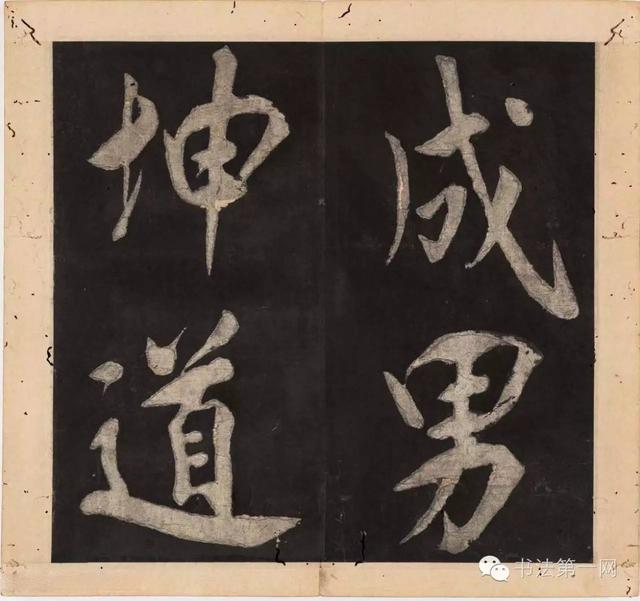 成男
坤道
书法第一网